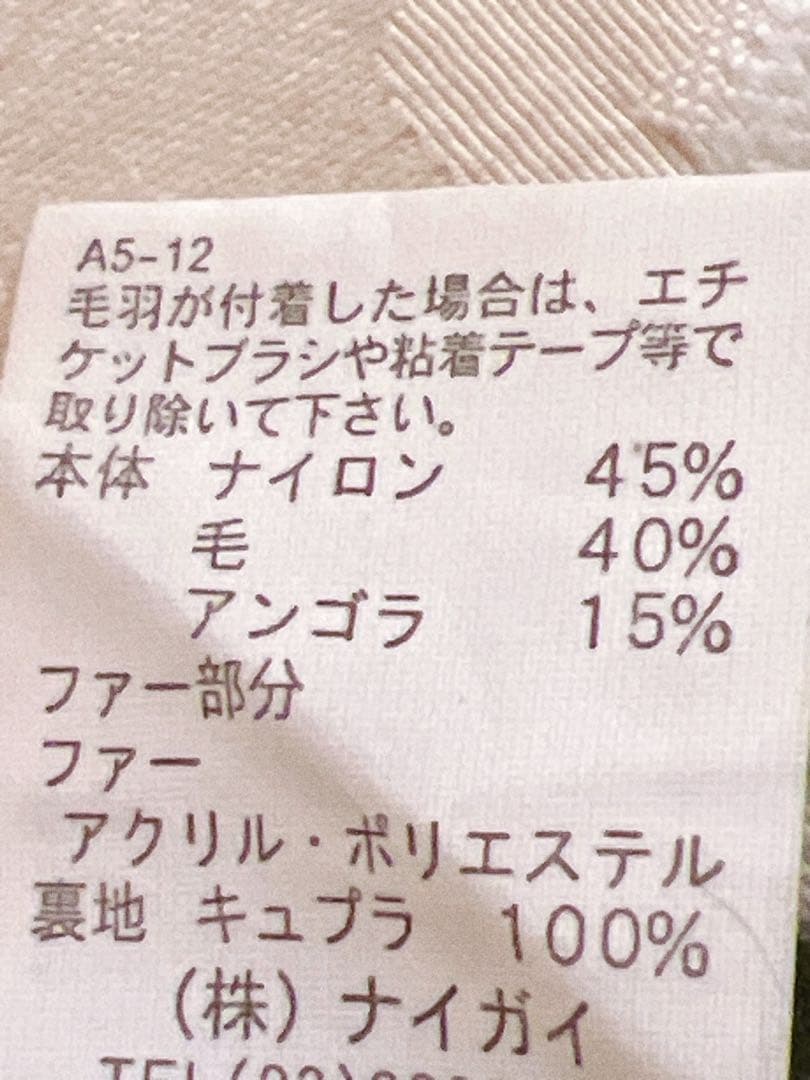 A5-12
毛羽が付着した場合は、エチ
ケットブラシや粘着テープ等で
取り除いて下さい。
本体 ナイロン 45%
毛 40%
アンゴラ 15%
ファー部分
ファー
アクリル・ポリエステル
裏地 キュプラ 100%
(株)ナイガイ
TEL(03)